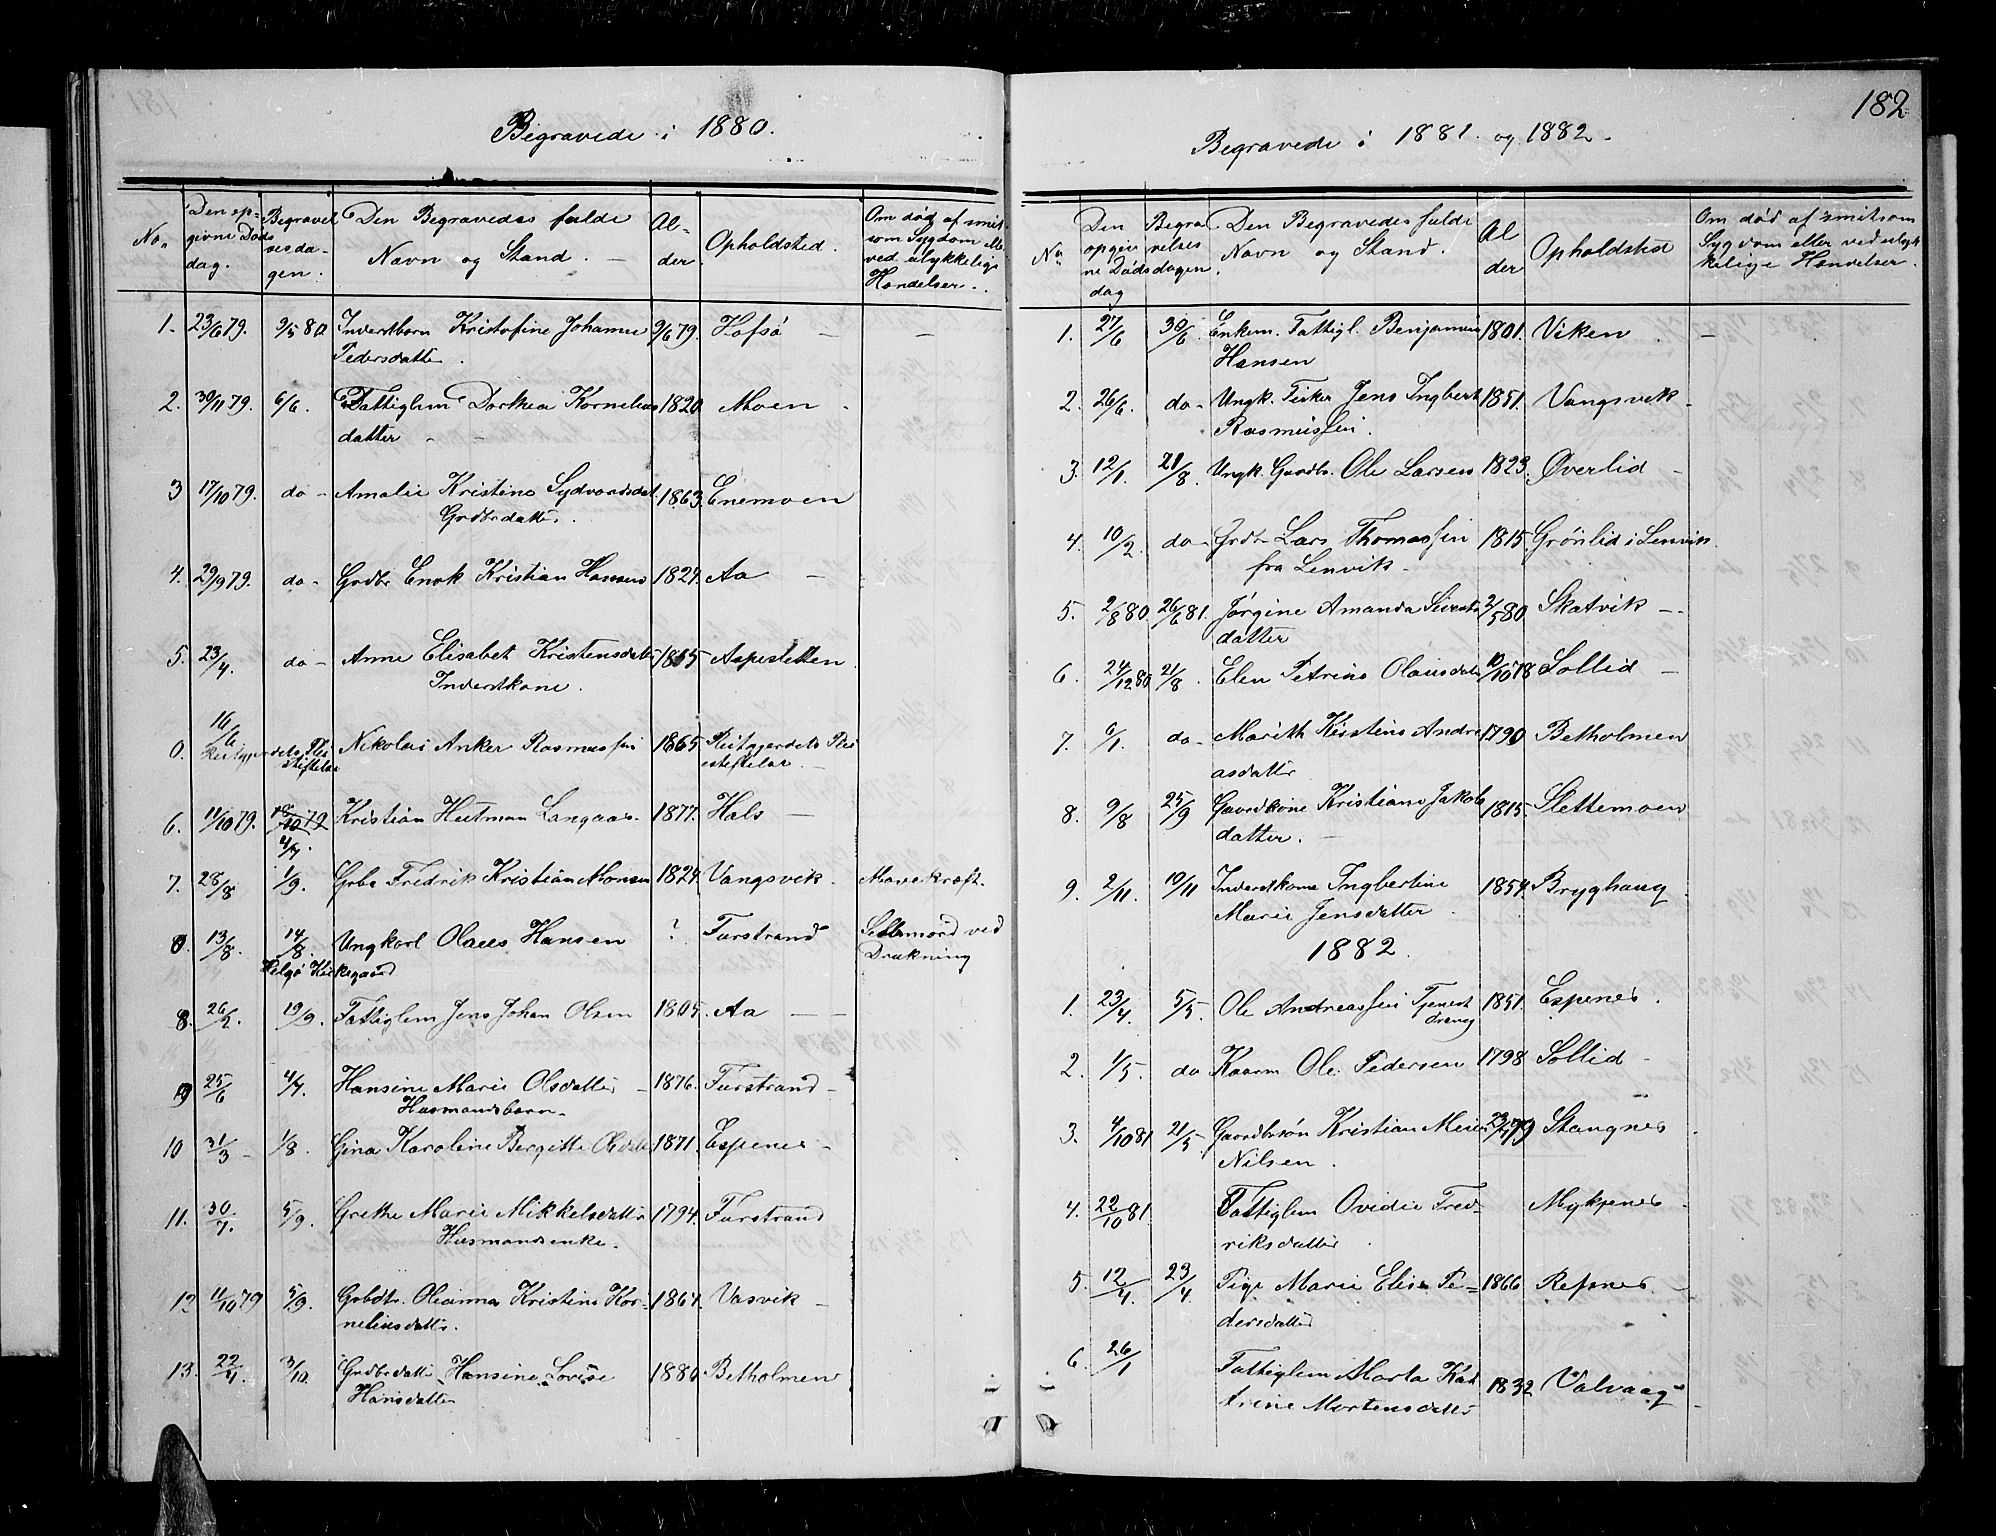 Begravede i 1880.
No. Den opgivne Dødsdag. Begravelsesdagen. Den Begravedes fulde Navn og Stand. Alder Opholdsted. Om død af smitsom Sygdom eller ved ulykkelige Hændelser.
1. 23/6 79. 9/5 80 Inderstbarn Kristofine Johanne 9/6 79. Hofsø — —
Pedersdatter.
2. 30/11 79. 6/6. Fattiglem Dorthea Kornelius 1820 Moen
datter
3 17/10 79. do - Amalie Kristine Sydvardsdat 1863. Enemoen
Grdbrdatter.
4. 29/9 79. do - Grdbr Enok Kristian Hansens 1824. Aa —
5. 23/4. do - Anne Elisabet Kristensdatter 1815 Aspesletten
Inderstkone.
0. 16/6 Nikolai Anker Rasmussen 1865
6. 11/10 79. 18/10 79 Kristian Hutman Langaas. 1877. Hals —
4/7.
7. 28/8 1/9. Grbr Fredrik Kristian Monsen 1824. Vangsvik. Mavekræft.
0. 13/8. 14/8. Ungkarl Olaus Hansen ? Furstrand Selvmord ved
Helgø Kirkegaard Drukning
8. 26/2. 19/9. Fattiglem Jens Johan Olsen 1805. Aa —
9 25/6 4/7. Hansine Marie Olsdatter 1876. Furstrand -
Husmandsbarn.
10 31/3 - 1/8. Gina Karoline Bergitte Olsdatt 1871. Espenes -
11. 30/7. 5/9. Grethe Marie Mikkelsdatter 1794. Furstrand
Husmandsenke.
12 11/10 79 5/9. Grbdtr. Oleanna Kristine Kor- 1864. Vasvik -
neliusdatter.
13. 22/4. 3/10. Grdbrdatter Hansine Lovise 1880. Betholmen
Hansdatter
182
Begravede i 1881. og 1882.
No Den opgivne Dødsdag Begravelsesdagen Den Begravedes fulde Navn og Stand. Alder Opholdsted Om død af smitsom Sygdom eller ved ulykkelige Hændelser.
1. 27/6 30/6. Enkem. Fattigl. Benjamin 1801. Viken. —
Hansen
2. 26/6. do - Ungk. Fisker Jens Ingbert 1851. Vangsvik -
Rasmussen.
3. 12/1 21/8. Ungk. Gaardbr. Ole Larsen 1823. Øverlid -
4. 10/2. do - Grdbr Lars Thomassen 1815. Grønlid i Lenvik.
fra Lenvik -
5. 2/8 80. 26/6 81. Jørgine Amanda Siverts 2/5 80 Skatvik -
datter
6. 24/12 80 21/8. Elen Petrine Olausdatter 10/10 78 Sollid -
7. 6/1. do - Marith Kirstine Andre 1790 Betholmen
asdatter
8. 9/8 25/9 Gaardkone Kristiane Jakobs 1815. Slettemoen
datter. -
9. 2/11. 10/11 Inderstkone Ingbertine 1854. Bryghaug
Marie Jensdatter.
1882.
1. 23/4. 5/5. Ole Andreassen Tjenest 1851. Espenes.
dreng
2. 1/5. do Kaarm Ole Pedersen 1798 Sollid -
3. 4/10 81 21/5. Gaardbrsøn Kristian Meier 23/4 79 Stangnes
Nilsen.
4. 22/10 81. Fattiglem Ovidie Fred- Mykjenes -
riksdatter.
5. 12/4. 23/4 Pige Marie Elise Pe- 1866 Refsnes.
dersdatter
6. 26/1 Fattiglem Marta Kat
rine Mortensdatter 1832 Valvaag -